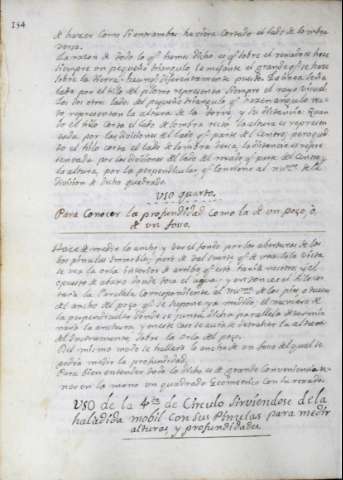 134
de hazer como si entrambos havieran Cortado el lado de la sombra
versa.
La razon de todo lo qe hemos dicho es qe sobre el cuadrado se hace
siempre un pequeño triangulo semejante al grande qe se hace
sobre la tierra, haunqe diferentemente puestos. La linea seña
lada por el hilo del plomo representa siempre el rayo visual
Los dos otros lados del pequeño triangulo qe hazen angulo rec
to, representan la altura de la torre, y su distancia. Quan
do el hilo corta el lado de sombra recta la altura es represen
tada, por las divisiones del lado, qe parte del Centro, pero quan
do el hilo corta el lado de sombra versa, la distancia es repre
sentada por las divisiones del lado del cuadrado qe parte del Centro, y
la altura, por la perpendicular, qe
division de dicho quadrado.
USO quarto.
Para Conocer la profundidad como la de un pozo, o
de un foso.
el ancho, y ver el fondo por las aberturas de las
dos pinulas immobiles, pero de tal suerte qe
se vea la orla de arriba qe está hacia vosotros, y el
opuesto de abajo donde toca el agua; y entonces el hilo cor
tará la paralela Correspondiente al numero de los pies o tuesas
del ancho del pozo qe se supone ya medido, el numero de
la perpendicular donde se junta dicha parallela determi
nará la anchura, y en este caso se de la altura
del Instrumento sobre la orla del pozo.
Del mismo modo se hallará lo ancho de un foso del qual se
podria medir la profundidad.
Para bien entender todo lo dicho es de grande conveniencia te
ner en la mano un quadrado Geometrico con su
USO de la 4ta de Circulo Sirviendose de la
haladida mobil con sus Pinulas para medir
alturas y profundidades.